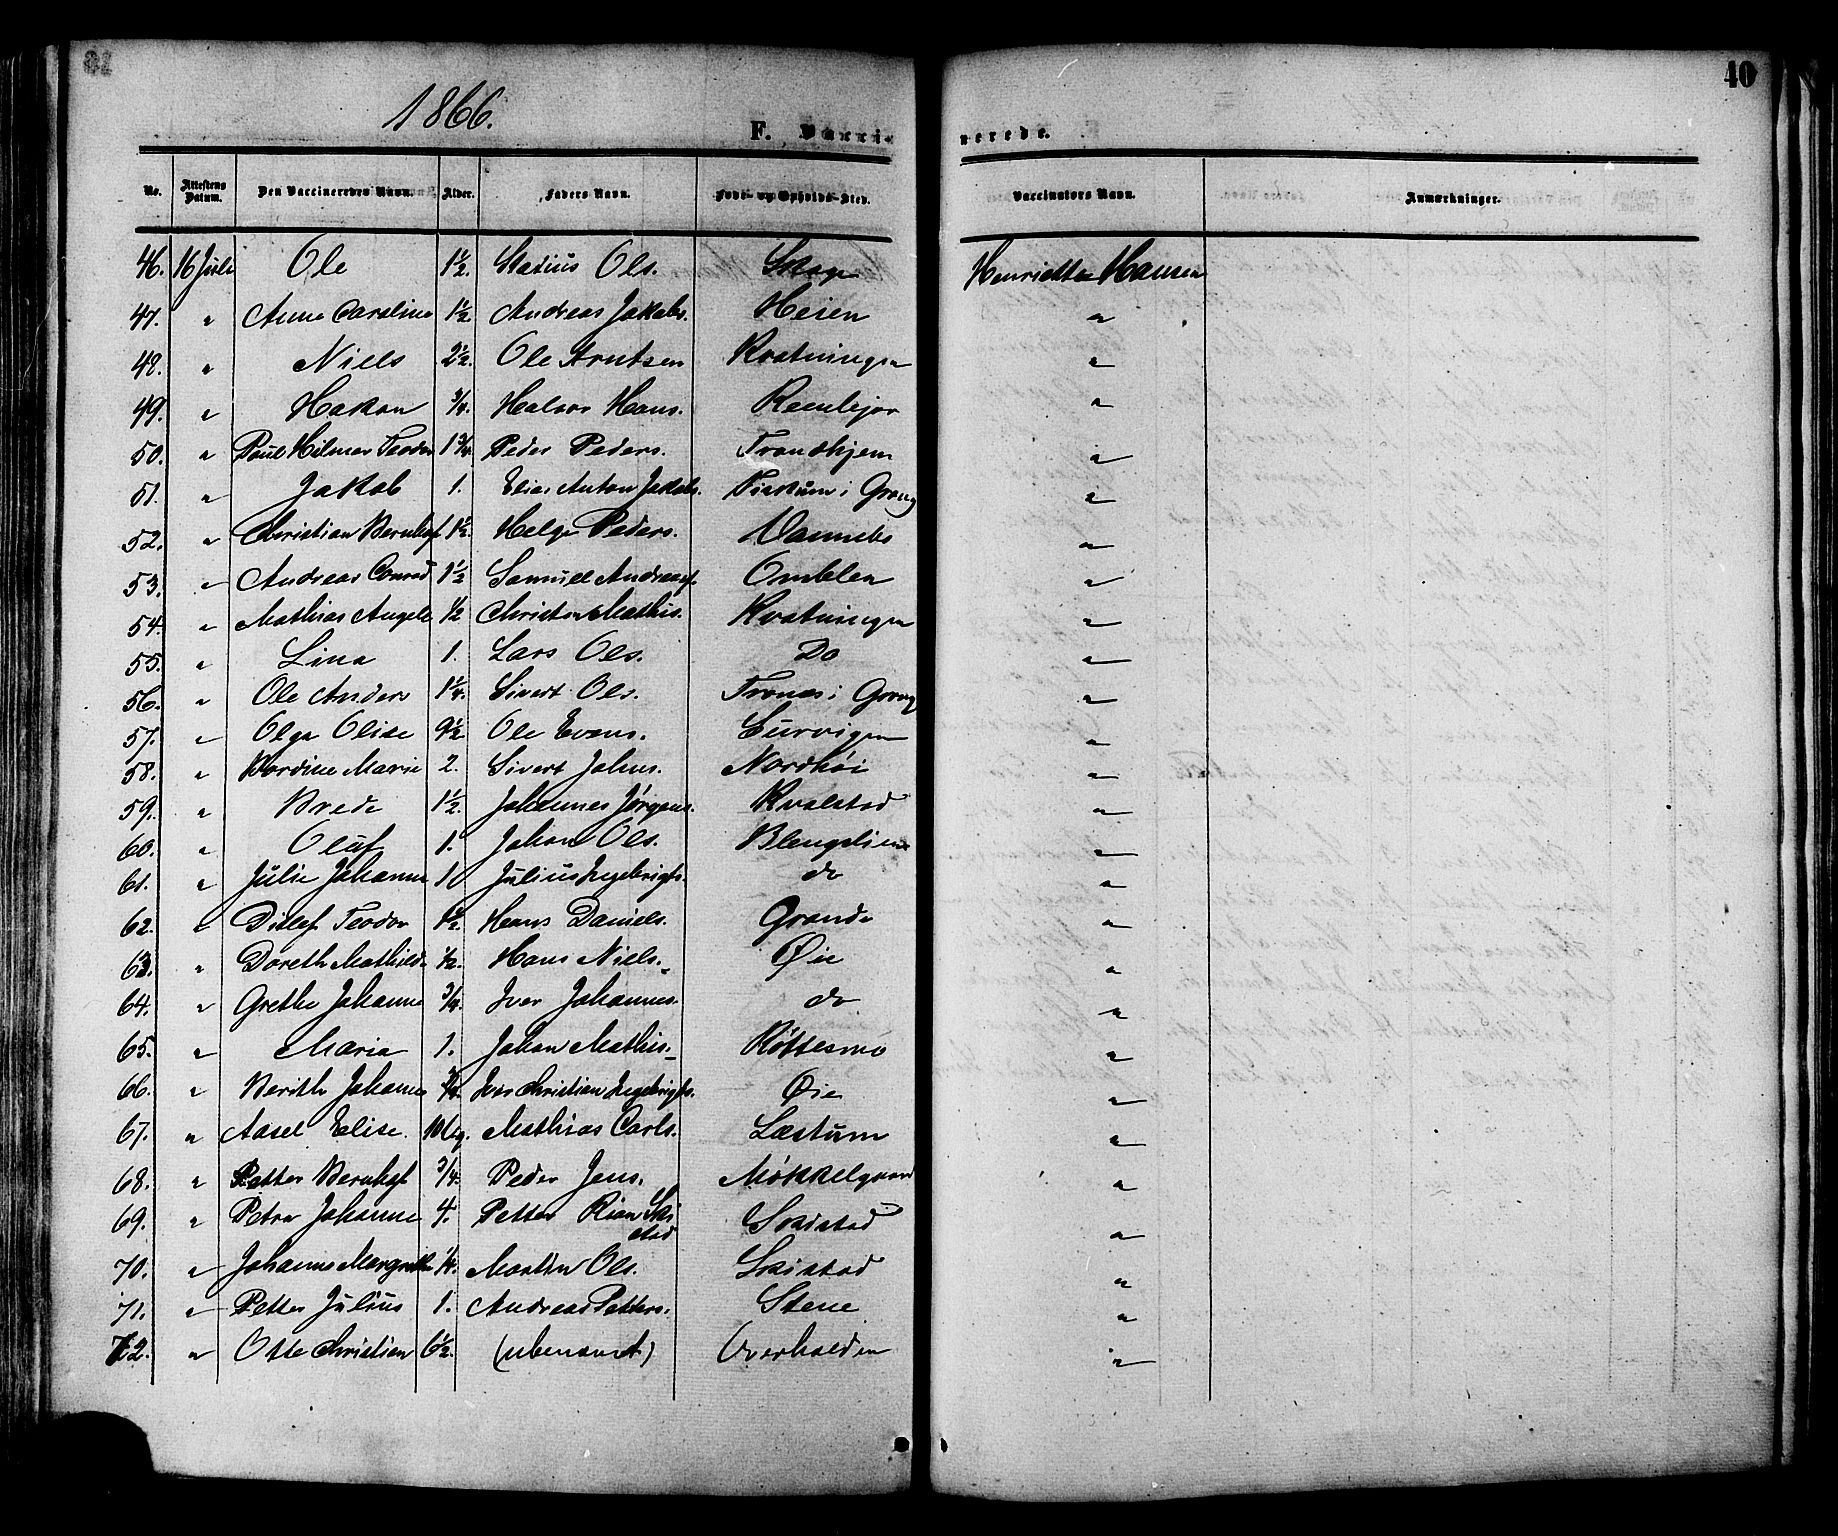 40
1866.
F. Vaccinerede.
No. Attestens Datum. Den Vaccineredes Navn. Alder. Faders Navn. Føde- og Opholds-Sted. Vaccinators Navn. Anmærkninger.
46. 16 Juli Ole 1½. Ols. Skage Henriette Hansen
47. " Anne Caroline 1½ Andreas Jakobs. Heien "
48. " Niels 2½. Ole Arntsen Kvatningen "
49. " Hakon ¾. Halvor Hans. "
50. " Poul Hilmer Teodor 1¾. Peder Peders. Trondhjem "
51. " Jakob 1. Elias Anton Jakobs. Fiskum i Grong "
52. " Christian Bernhof 1½. Helge Peders. "
53. " Andreas Conrad 1½ Samuel Andreas. Omblen "
54. " Mathias Angel ½ Christen Mathis. Kvatningen "
55. " Lina 1. Lars Ols. Do "
56. " Ole Anders 1¼. Sivert Ols. Tronæs i Grong "
57. " Olga Olise 9½ Ole Evens. "
58. " Bordine Marie 2. Sivert Johns. Nordhøi "
59. " Brede 1½. Johannes Jørgens. Kvalstad "
60. " Oluf 1. Johan Ols. Blengslien "
61. " Julie Johanne 1. Julius Ingebrigts. do "
62. " Ditlef Teodor 1½. Hans Daniels. Grande "
63. " Doreth Mathilde ½. Hans Niels. Øie "
64. " Grethe Johanne ¾. Iver Johannes. do "
65. " Maria 1. Johan Mathis. Røttesmo "
66. " Berith Johanne Iver Christian Ingebrigts. Øie "
67. " Aasel Elise. 10 Ug. Mathias Carls. Læstum "
68. " Petter Bernhof ¾. Peder Jens. Møkkelgaard "
69. " Petra Johanne 4. Petter Rian Skistad Skistad "
70. " Johanne Margrethe ¼. Martin Ols. Skistad "
71. " Petter Julius 1. Andreas Petters. Stene "
72. " Otte Christian 6½. (ubenævnt) Overhalden "